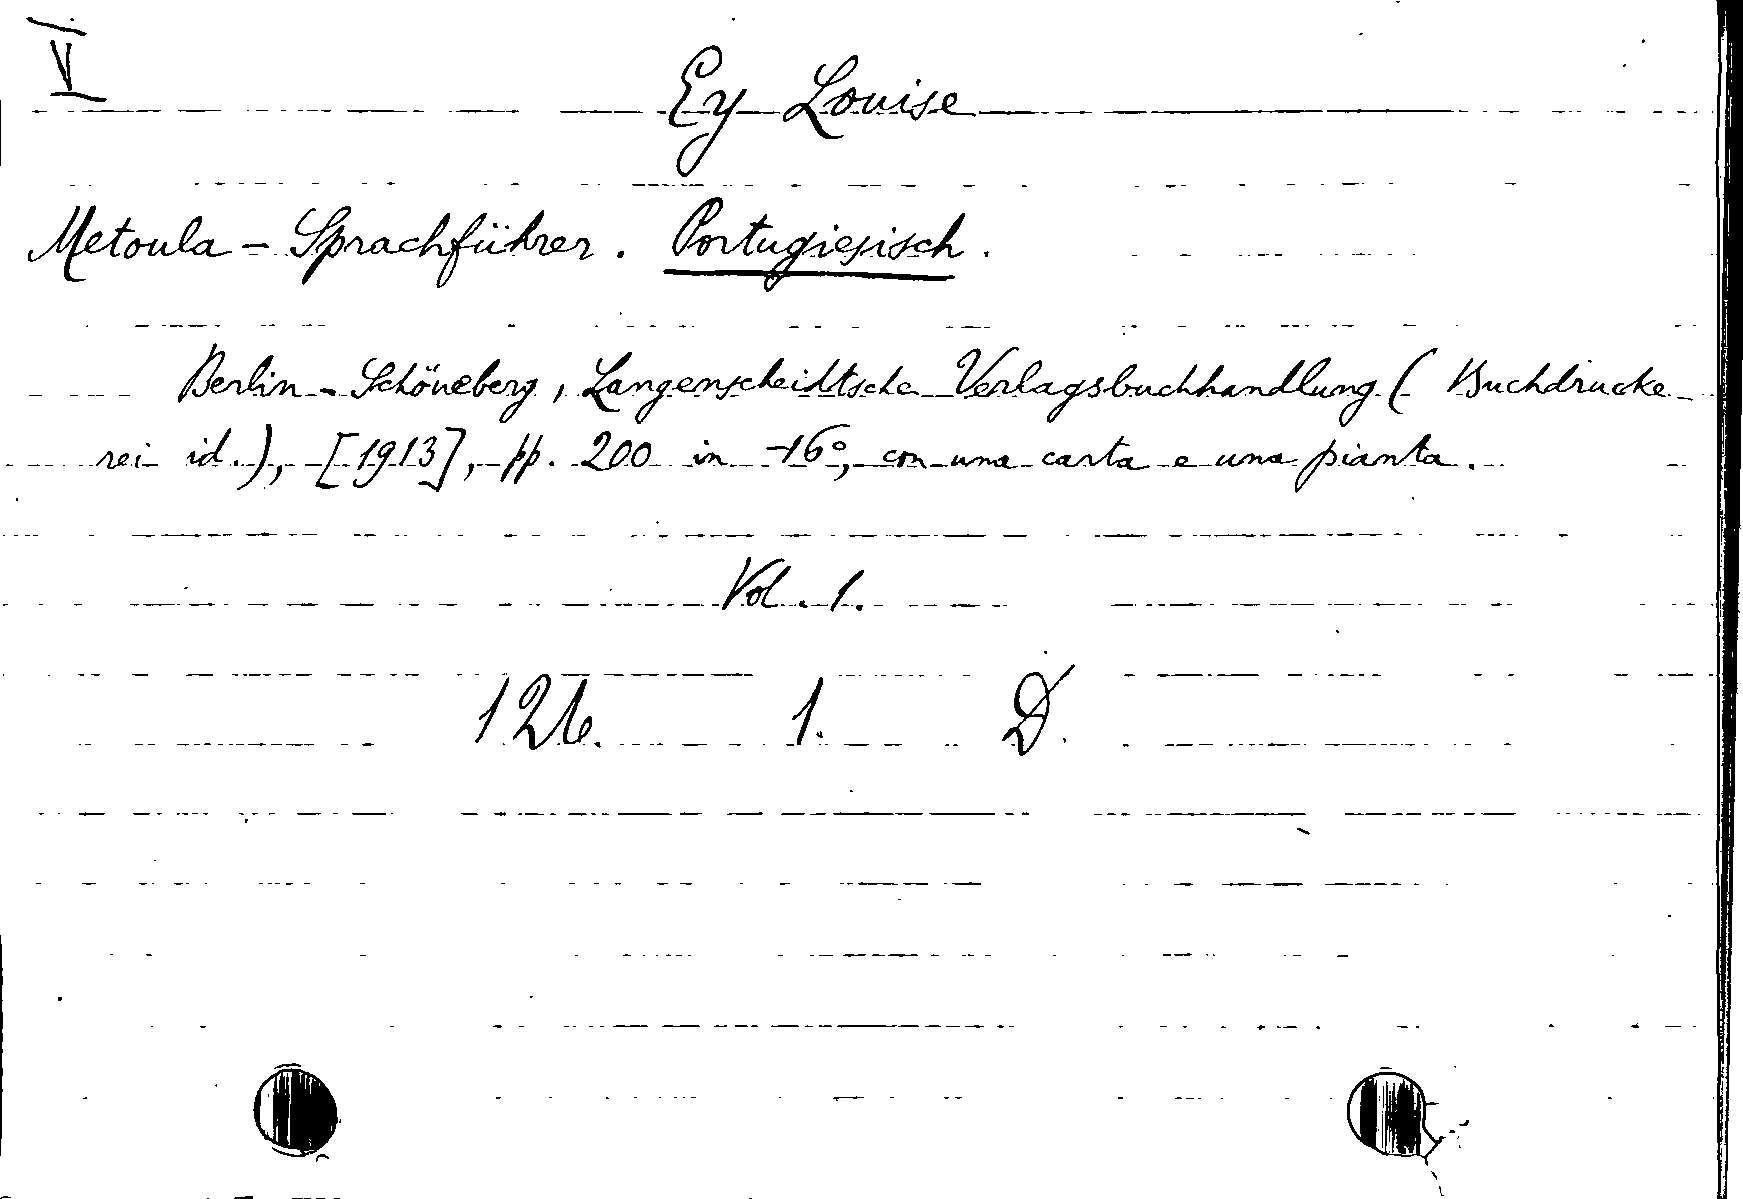 V
Ey Louise
Metoula - Sprachführer. Portugiesisch.
Berlin - Schöneberg, Langenscheidtsche Verlagsbuchhandlung (Buchdrucke
rei id.), [1913], pp. 200 in -16°, con una carta e una pianta.
Vol. 1.
126. 1. D.